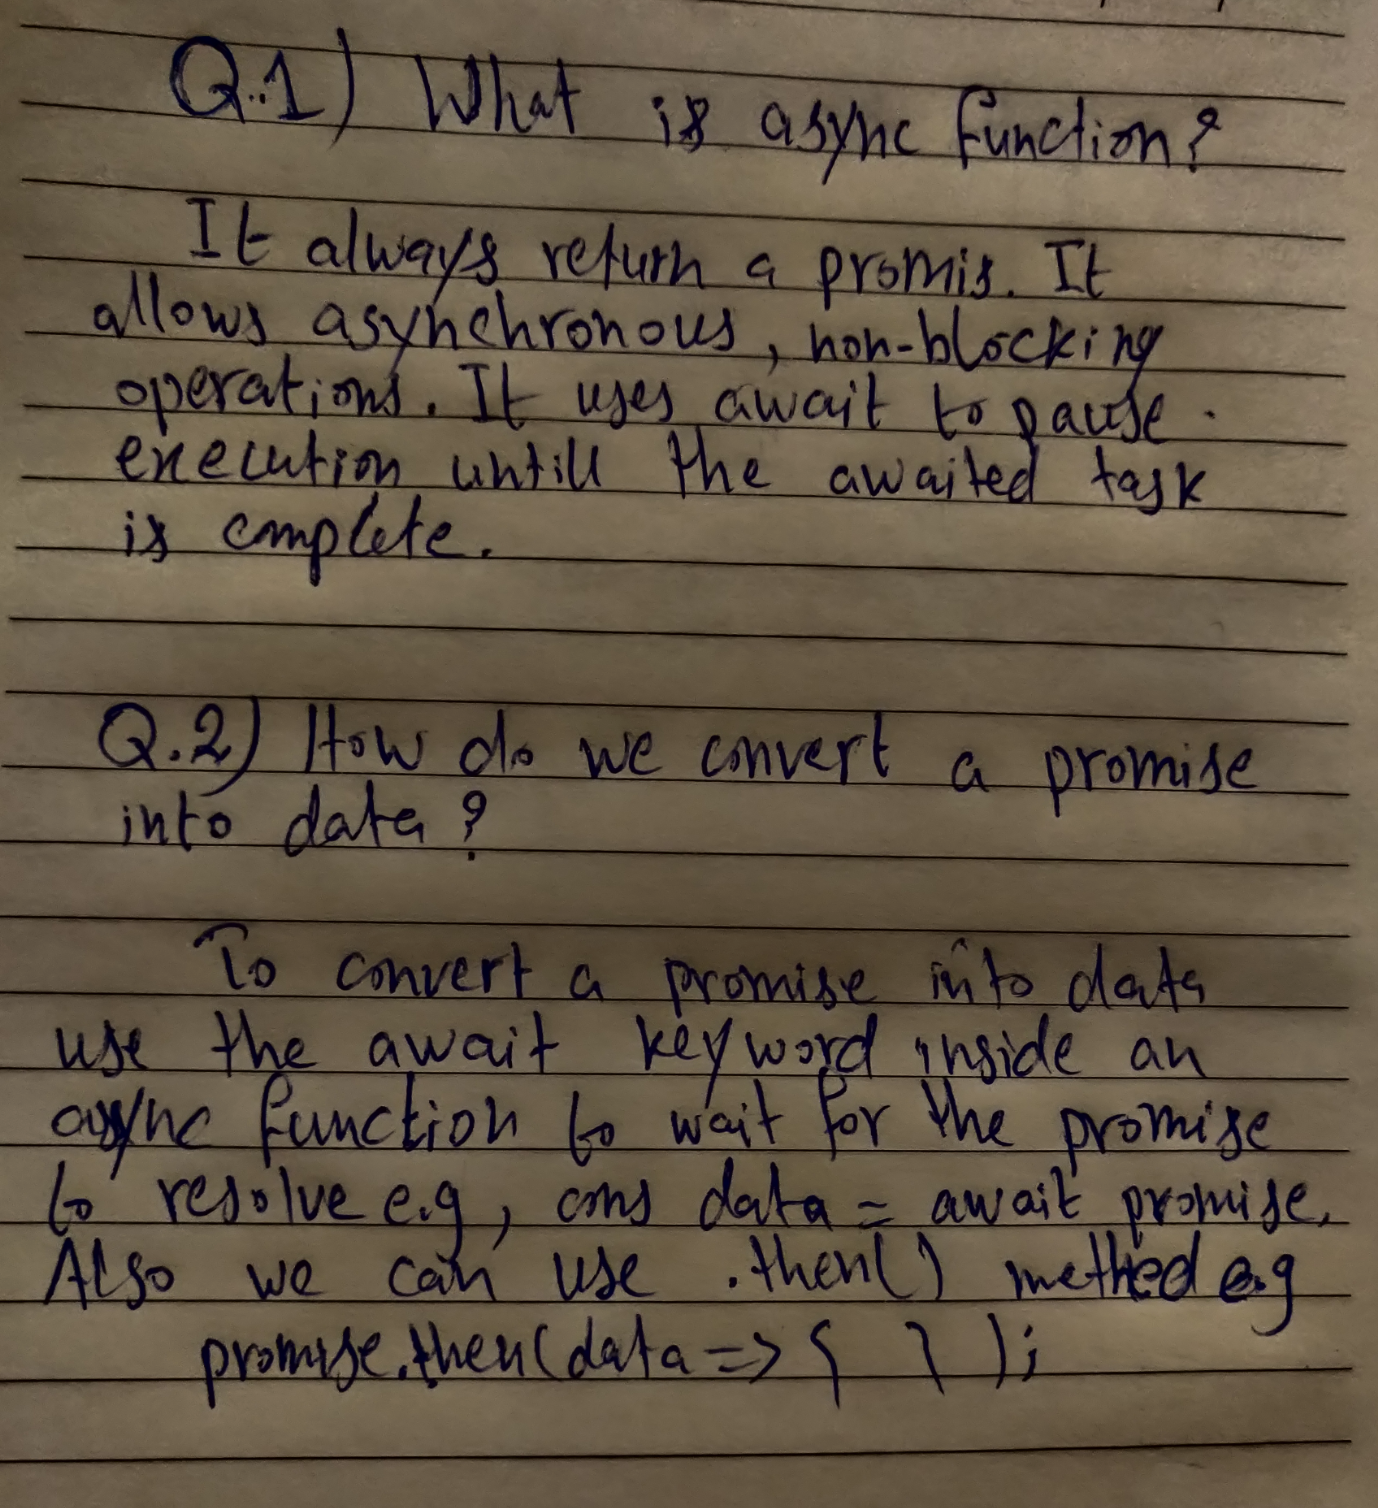 Q.1) What is async function?
It always return a promis. It
allows asynchronous, non-blocking
operations. It uses await to pause.
execution untill the awaited task
is complete.
Q.2) How do we convert a promise
into data?
To convert a promise into data
use the await keyword inside an
async function to wait for the promise
to resolve e.g, cons data = await promise.
Also we can use .then() method e.g
promise.then(data => { } );